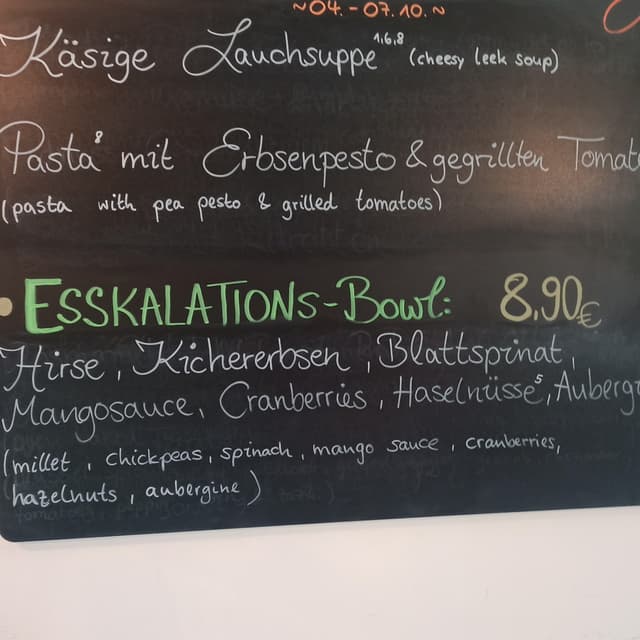 ~04.-07.10.~
Käsige Lauchsuppe 1,6,8 (cheesy leek soup)
Pasta 8 mit Erbsenpesto & gegrillten Tomat
(pasta with pea pesto & grilled tomatoes)
• ESSKALATIONS-Bowl: 8,90€
Hirse, Kichererbsen, Blattspinat,
Mangosauce, Cranberries, Haselnüsse 5, Auberg
(millet, chickpeas, spinach, mango sauce, cranberries,
hazelnuts, aubergine)